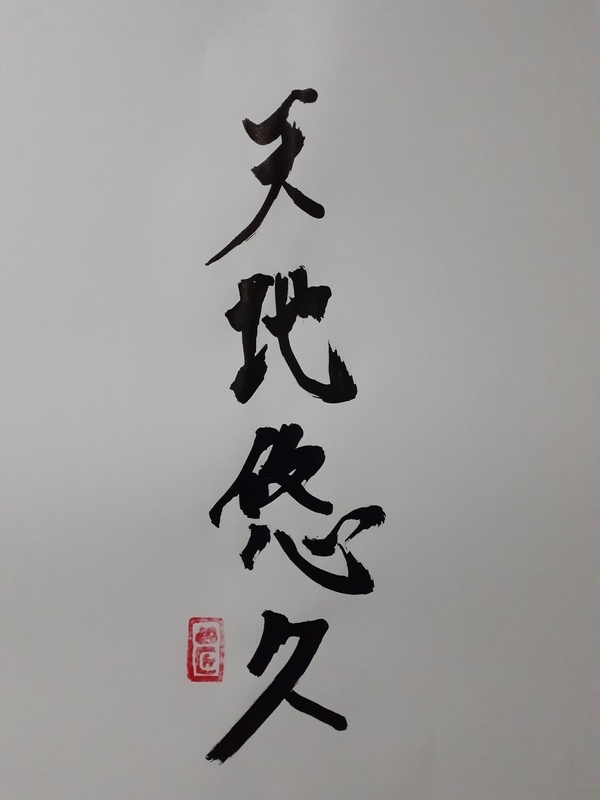 天地悠久